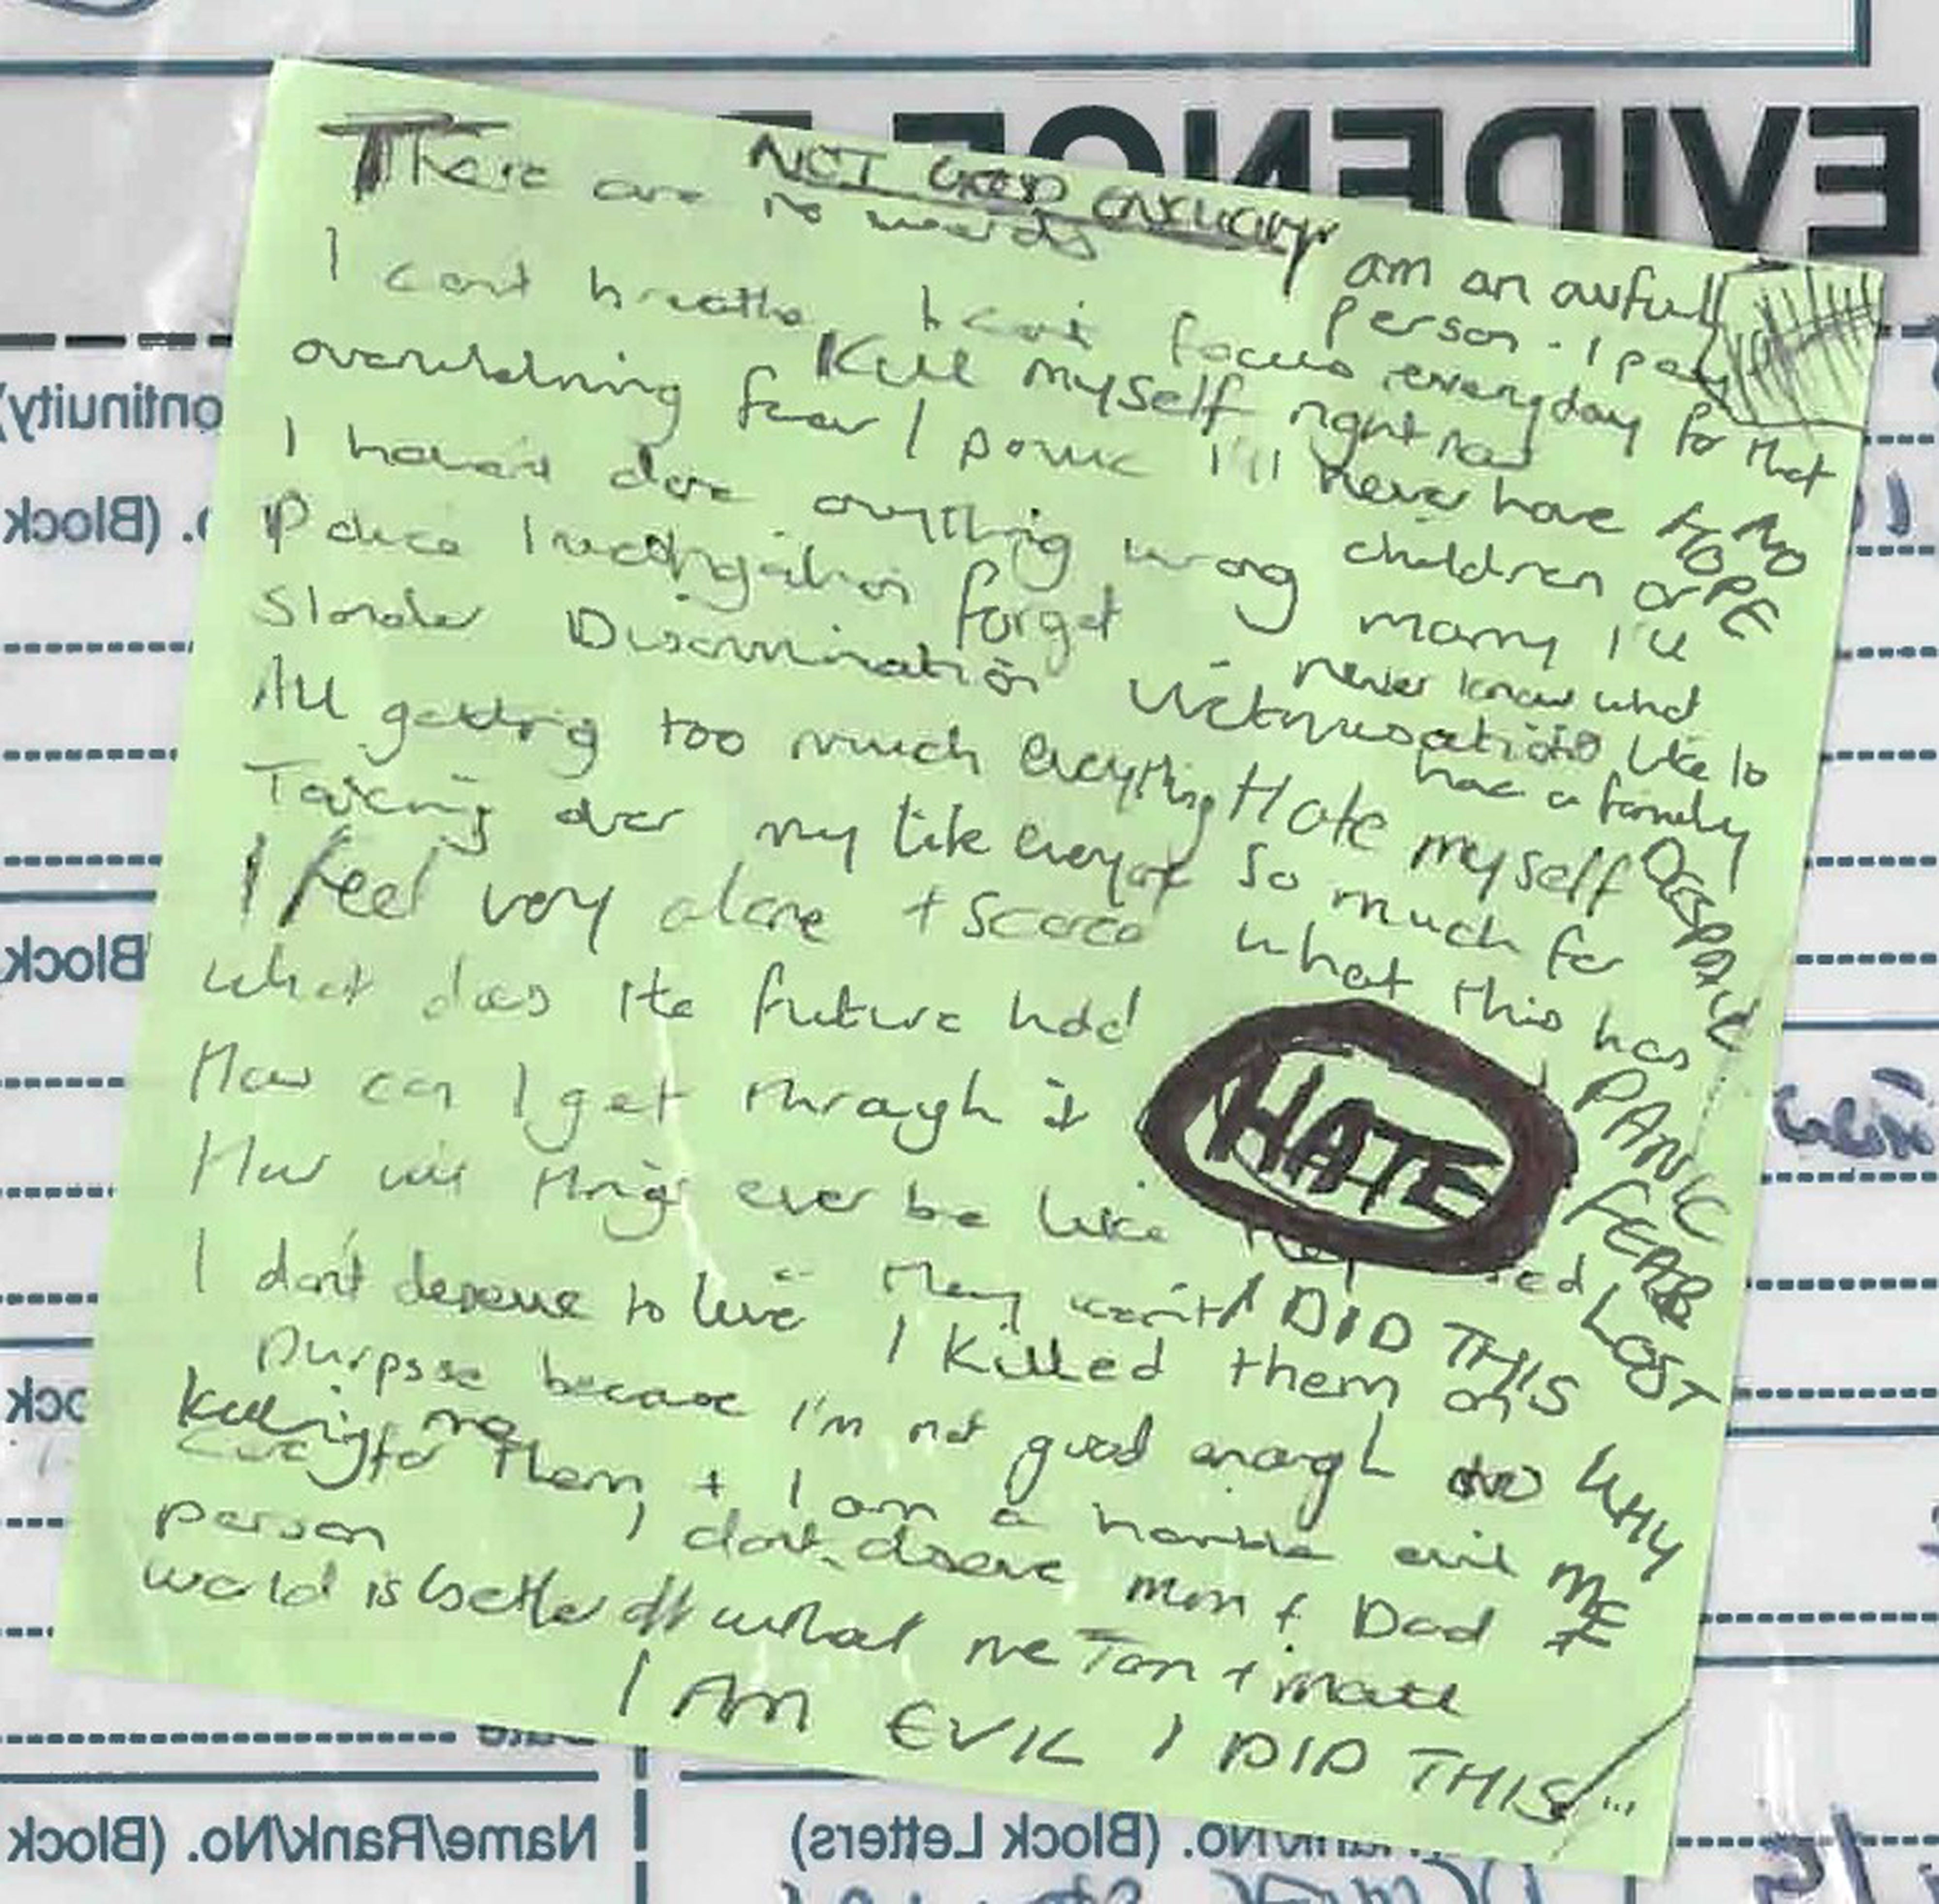 EVIDENCE
NOT GOOD ENOUGH
There are no words
I am an awful
person - I pay
everyday for that
I can't breathe I can't focus
Kill myself right now
overwhelming fear / panic
I'll never have
children or
marry I'll
never know what
like to
have a family
NO
HOPE
I haven't done anything wrong
Police Investigation forget
Slander Discrimination Victimisation
All getting too much everything
Taking over my life everyone
Hate myself
so much for
what this has
I feel very alone + scared
What does the future hold
How can I get through it
HATE
How will things ever be like they
DESPAIR
PANIC
FEAR
LOST
I don't deserve to live
They won't
I DID THIS
WHY
ME
I killed them on
purpose because I'm not good enough to
care for them + I am a horrible evil
Killing me
person
I don't deserve Mum + Dad +
world is better off without me Tom + Matt
I AM EVIL I DID THIS
ontinuity)
o. (Block
Block
ock
Date
Name/Rank/No. (Block
Rank/No. (Block Letters)